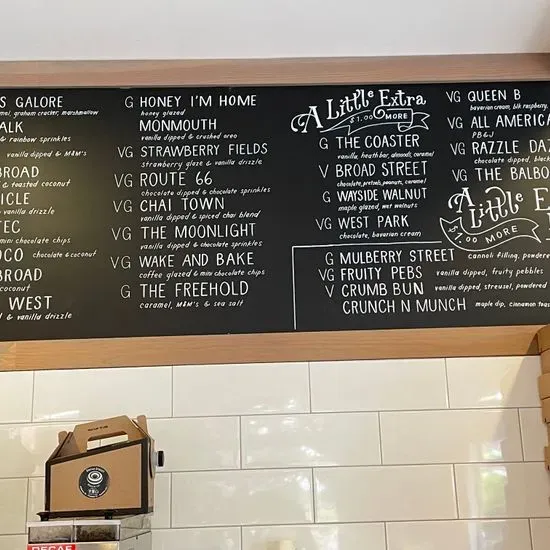 S GALORE
mel, graham cracker, marshmallow
ALK
& rainbow sprinkles
vanilla dipped & M&M's
BROAD
& toasted coconut
ICLE
vanilla drizzle
TEC
mini chocolate chips
OCO chocolate & coconut
BROAD
coconut
WEST
& vanilla drizzle
G HONEY I'M HOME
honey glazed
MONMOUTH
vanilla dipped & crushed oreo
VG STRAWBERRY FIELDS
strawberry glaze & vanilla drizzle
VG ROUTE 66
chocolate dipped & chocolate sprinkles
VG CHAI TOWN
vanilla dipped & spiced chai blend
VG THE MOONLIGHT
vanilla dipped & chocolate sprinkles
VG WAKE AND BAKE
coffee glazed & mini chocolate chips
G THE FREEHOLD
caramel, M&M's & sea salt
A Little Extra
$1.00 MORE
G THE COASTER
vanilla, heath bar, almonds, caramel
V BROAD STREET
chocolate, pretzels, peanuts, caramel
G WAYSIDE WALNUT
maple glazed, wet walnuts
VG WEST PARK
chocolate, bavarian cream
VG QUEEN B
bavarian cream, blk raspberry,
VG ALL AMERICA
PB&J
VG RAZZLE DAZ
chocolate dipped, black
VG THE BALBO
A Little E
$1.00 MORE
G MULBERRY STREET cannoli filling, powdered
VG FRUITY PEBS vanilla dipped, fruity pebbles
V CRUMB BUN vanilla dipped, streusel, powdered
CRUNCH N MUNCH maple dip, cinnamon toas
DECAF